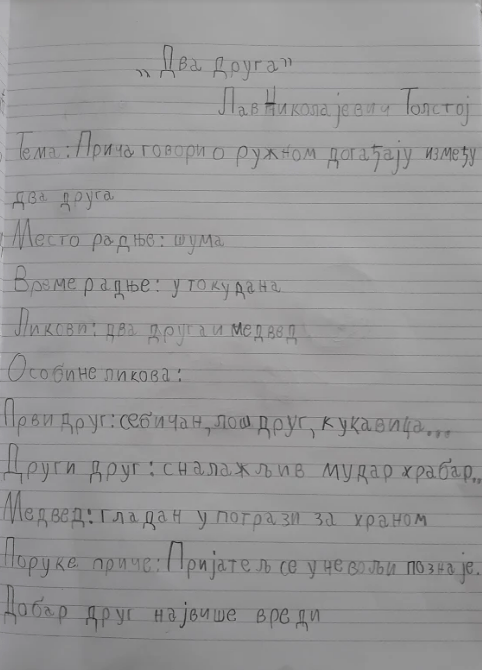 „Два друга”
Лав Николајевич Толстој
Тема: Прича говори о ружном догађају између
два друга
Место радње: шума
Време радње: у току дана
Ликови: два друга и медвед
Особине ликова:
Први друг: себичан, лош друг, кукавица...
Други друг: сналажљив мудар храбар..
Медвед: гладан у потрази за храном
Поруке приче: Пријатељ се у невољи познаје.
Добар друг највише вреди